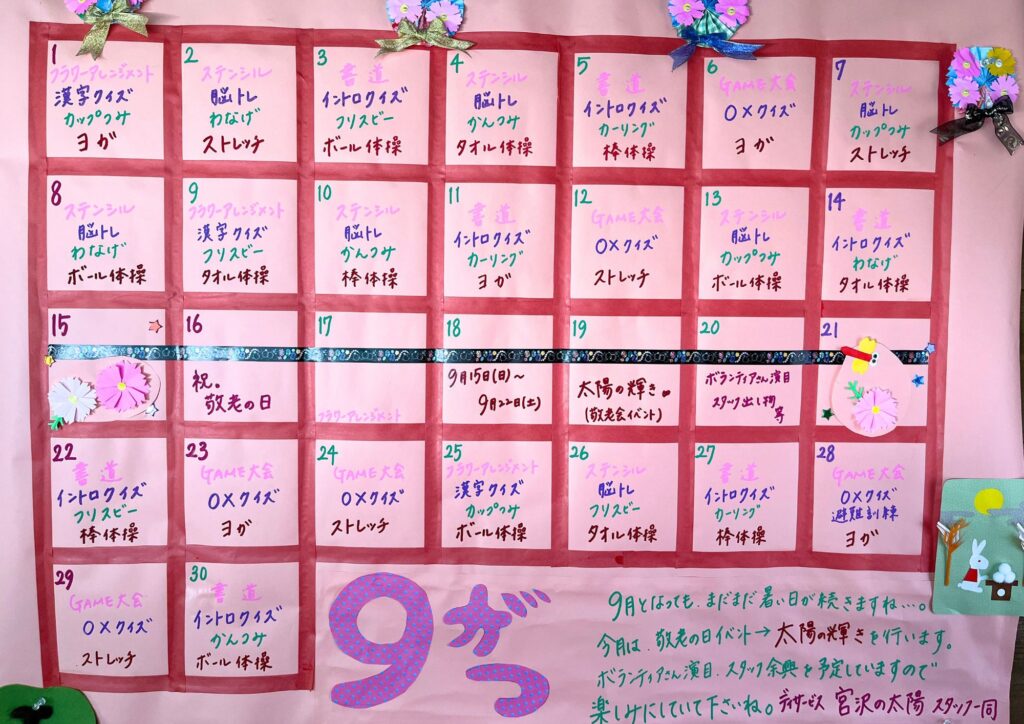 1
フラワーアレンジメント
漢字クイズ
カップつみ
ヨガ
2
ステンシル
脳トレ
わなげ
ストレッチ
3
書道
イントロクイズ
フリスビー
ボール体操
4
ステンシル
脳トレ
かんつみ
タオル体操
5
書道
イントロクイズ
カーリング
棒体操
6
GAME大会
OXクイズ
ヨガ
7
ステンシル
脳トレ
カップつみ
ストレッチ
8
ステンシル
脳トレ
わなげ
ボール体操
9
フラワーアレンジメント
漢字クイズ
フリスビー
タオル体操
10
ステンシル
脳トレ
かんつみ
棒体操
11
書道
イントロクイズ
カーリング
ヨガ
12
GAME大会
OXクイズ
ストレッチ
13
ステンシル
脳トレ
カップつみ
ボール体操
14
書道
イントロクイズ
わなげ
タオル体操
15
16
祝。
敬老の日
17
フラワーアレンジメント
18
9月15日(日)~
9月22日(土)
19
太陽の輝き
(敬老会イベント)
20
ボランティアさん演目
スタッフ出し物
等
21
22
書道
イントロクイズ
フリスビー
棒体操
23
GAME大会
OXクイズ
ヨガ
24
GAME大会
OXクイズ
ストレッチ
25
フラワーアレンジメント
漢字クイズ
カップつみ
ボール体操
26
ステンシル
脳トレ
フリスビー
タオル体操
27
書道
イントロクイズ
カーリング
棒体操
28
GAME大会
OXクイズ
避難訓練
ヨガ
29
GAME大会
OXクイズ
ストレッチ
30
書道
イントロクイズ
かんつみ
ボール体操
9がつ
9月となっても、まだまだ暑い日が続きますね…。
今月は、敬老の日イベント→太陽の輝きを行います。
ボランティアさん演目、スタッフ余興を予定していますので
楽しみにしていて下さいね。デイサービス 宮沢の太陽 スタッフ一同